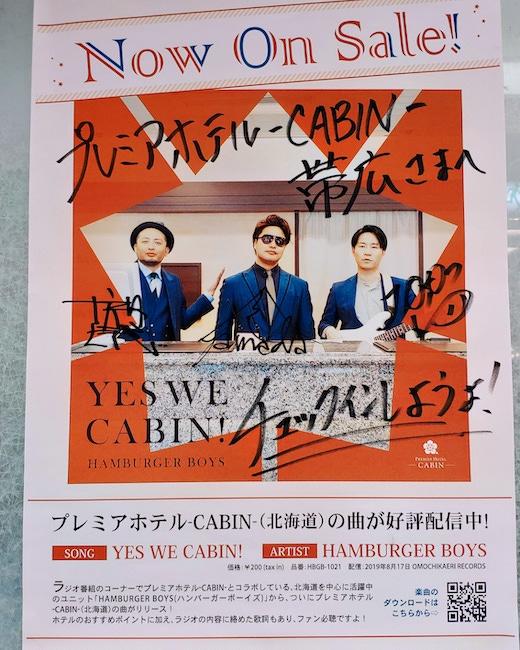 Now On Sale!
プレミアホテル-CABIN-
帯広さまへ
yamada
YES WE
CABIN!
HAMBURGER BOYS
チェックインしようよ!
PREMIER HOTEL
CABIN
プレミアホテル-CABIN-(北海道)の曲が好評配信中!
SONG YES WE CABIN! ARTIST HAMBURGER BOYS
価格:¥200 (tax in) 品番:HBGB-1021 配信:2019年8月17日 OMOCHIKAERI RECORDS
ラジオ番組のコーナーでプレミアホテル-CABIN-とコラボしている、北海道を中心に活躍中
のユニット「HAMBURGER BOYS(ハンバーガーボーイズ)」から、ついにプレミアホテル
-CABIN-(北海道)の曲がリリース!
ホテルのおすすめポイントに加え、ラジオの内容に締めた歌詞もあり、ファン必聴ですよ!
楽曲の
ダウンロードは
こちらから⇨